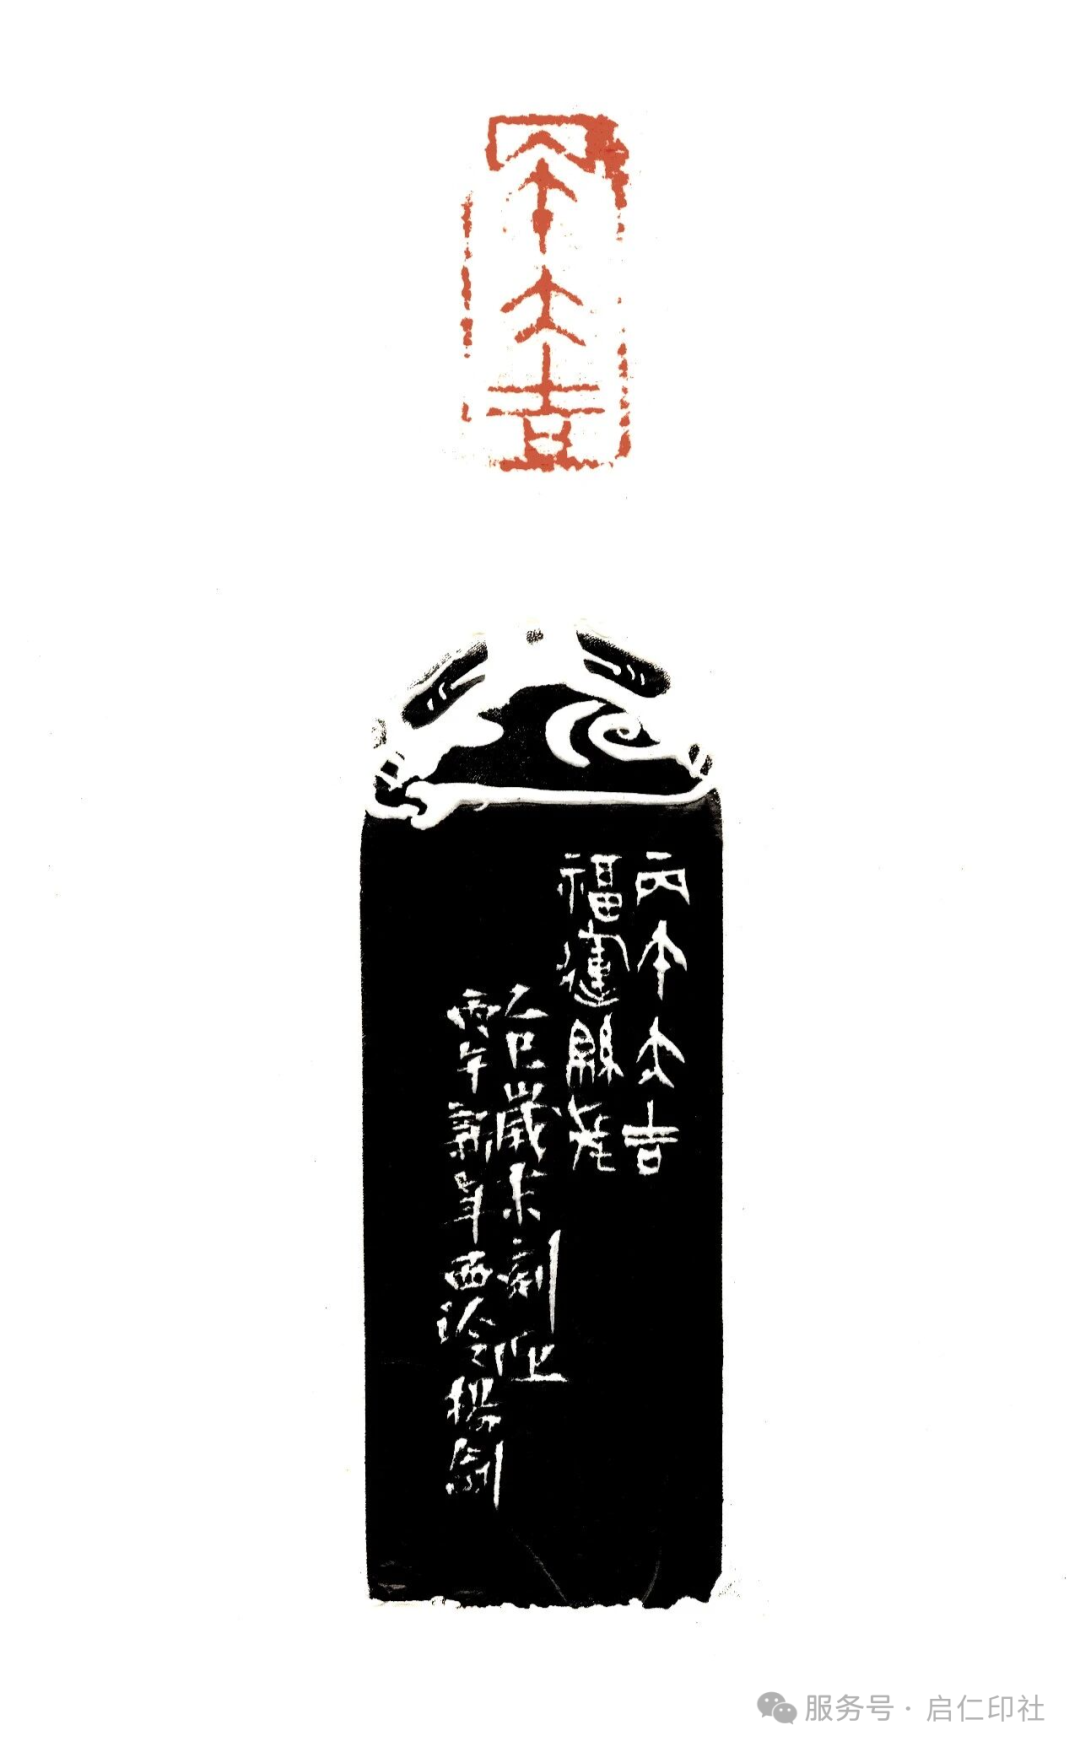 丙午大吉
丙午大吉
福運緜延
乙巳歲末刻迎
丙午新年西泠楊劍
服务号 · 启仁印社